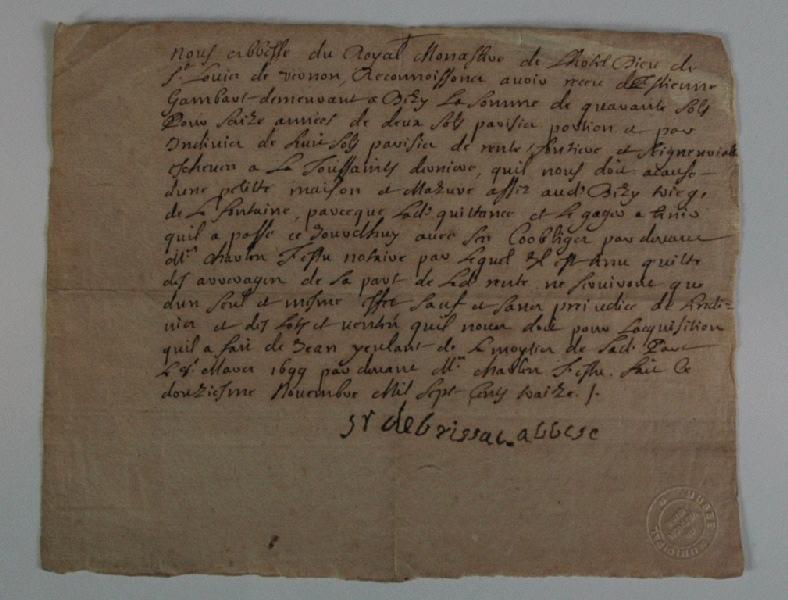 Nous abbesse du Royal Monastere de Lhostel Dieu de
St Louis de vernon, Reconnoissons avoir receu dEstienne
Gambart demeurant a Bizy La Somme de quarante Sols
Pour Saize années de deux Sols parisis portion et par
Indivis de huit Sols parisis de rente fonsiere et Seigneuriale
Escheus a La Toussaints derniere, quil nous doit acause
dune petitte maison et Mazure assize aud. Bizy
de La fontaine, Lad. quittance et Legages
quil a passé ce Jourdhuy avec Ses Coobligez par devant
Me. Charles Festu notaire par Lequel Il est tenu quitte
des arrerages de La part de Lad. rente ne Serviront que
dun Seul et mesme Effet Sauf et Sans prejudice de Lindi-
vis et des Lots et ventes quil nous doit pour Lacquisition
quil a fait de Jean de La moytier de Lad. Part
Le 8. Mars 1699 par devant Me. Charles Festu. fait Ce
douziesme Novembre Mil Sept Cents traize ./.
Sr debrissac abbese
MUSEE MUNICIPAL